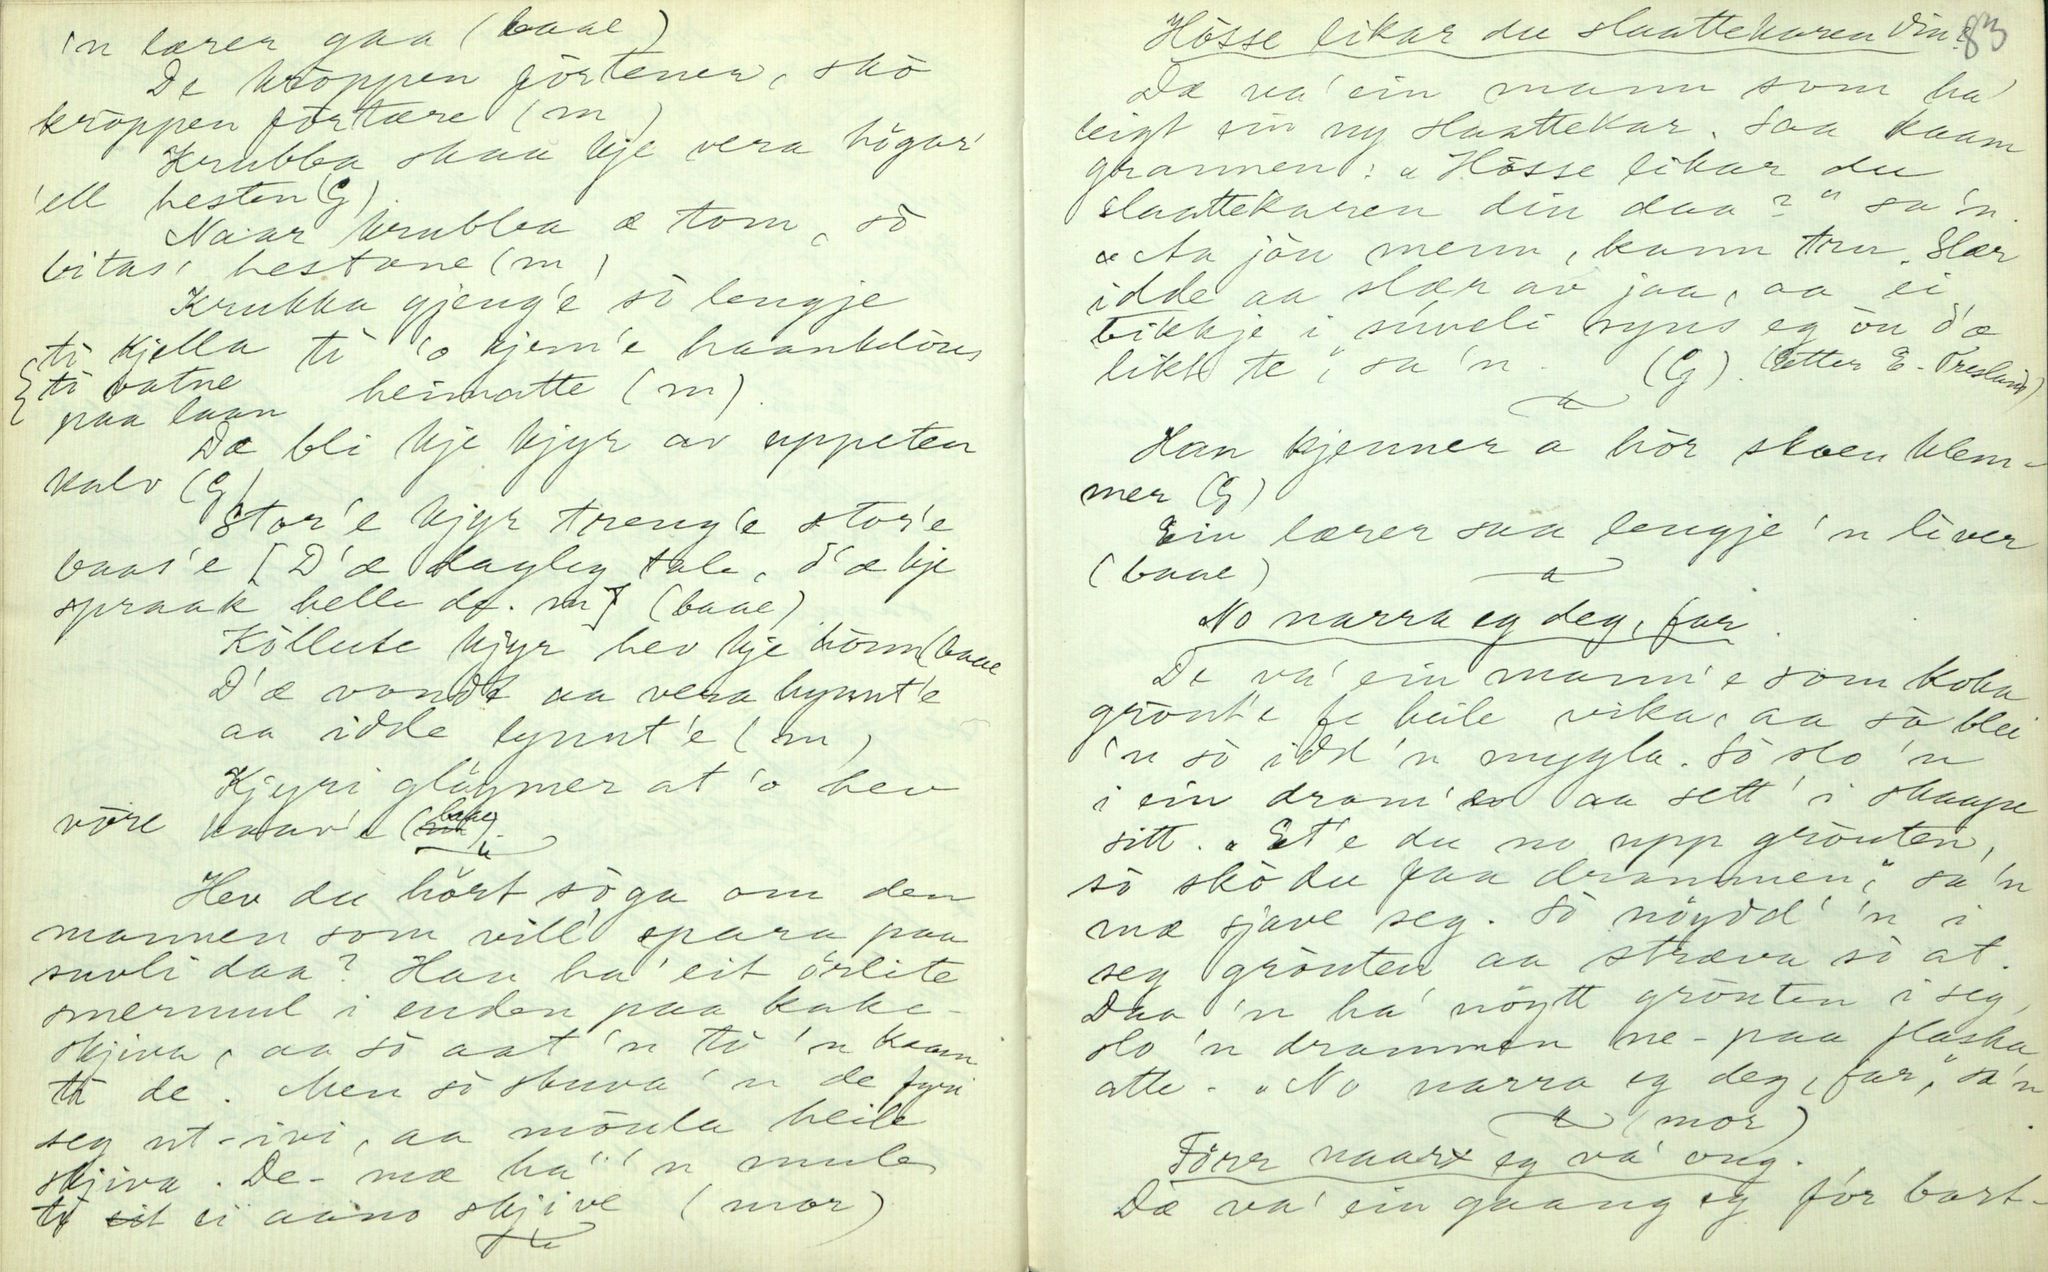 'n lærer gaa (baae)
De kröppen förtener, skö
kröppen förtære (m)
Krubba skaa kje vera högar'
'ell hesten (G)
Naar krubba æ tom, sö
bitas' hestane (m)
Krukka gjeng'e sö lengje
te kjella te 'o kjem'e haankelöus
te vatne heimatte (m).
paa laan
Dæ bli kje kjyr av uppeten
kalv (G)
Stor'e kjyr treng'e stor'e
baas'e [D'æ dagleg tale, d'æ kje
spraak helle de. m] (baae)
Köllute kjyr hev kje hönn (baae
D'æ vondt aa vera hynnt'e
aa idde lynnt'e (m)
Kjyri glöymer at 'o hev
vöre kaav'e (baae).
Hev du hört söga om den
mannen som vill' spara paa
suvli daa? Han ha' eit örlite
smermul i enden paa kake-
skjiva, aa sö aat 'n te 'n kaam
te de. Men sö skuva 'n de fyri
seg ut-ivi, aa mönla heile
skjiva. De-mæ ha' 'n mule
te ei aano skjive (mor)
Hösse likar du slaattekaren din? 83
Dæ va' ein mann som ha'
leigt ein ny slaattekar. Saa kaam
grannen: "Hösse likar du
slaattekaren din daa?" sa 'n.
"Aa jöu menn, kann tru. Slær
idde aa slær av jaa, aa ei
bikkje i suveli syns eg öu d'æ
likt te", sa 'n. (G). (etter E. Tresland)
Han kjenner a hör skoen klem-
mer (G)
Ein lærer saa lengje 'n lever
(baae)
No narra eg deg, far.
De va' ein mann'e som koka
gröut'e fe heile vika, aa sö blei
'n sö idd'n mygla. Sö slo 'n
i ein dram'e aa sett' i skaape
sitt. "Et'e du no upp gröuten,
sö skö du faa drammen," sa 'n
mæ sjave seg. Sö nöydd' 'n i
seg gröuten aa stræva sö at.
Daa 'n ha' nöytt gröuten i seg,
slo 'n drammen ne-paa flaska
atte. "No narra eg deg, far," sa 'n
(mor)
Förr naar eg va' ong.
Dæ va' ein gaang eg för bort-